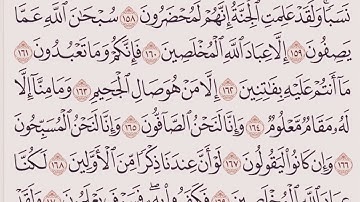 نَسَبًا ۚ وَلَقَدْ عَلِمَتِ ٱلْجِنَّةُ إِنَّهُمْ لَمُحْضَرُونَ ١٥٨ سُبْحَٰنَ ٱللَّهِ عَمَّا
يَصِفُونَ ١٥٩ إِلَّا عِبَادَ ٱللَّهِ ٱلْمُخْلَصِينَ ١٦٠ فَإِنَّكُمْ وَمَا تَعْبُدُونَ ١٦١
مَآ أَنتُمْ عَلَيْهِ بِفَٰتِنِينَ ١٦٢ إِلَّا مَنْ هُوَ صَالِ ٱلْجَحِيمِ ١٦٣ وَمَا مِنَّآ إِلَّا
لَهُۥ مَقَامٌ مَّعْلُومٌ ١٦٤ وَإِنَّا لَنَحْنُ ٱلصَّآفُّونَ ١٦٥ وَإِنَّا لَنَحْنُ ٱلْمُسَبِّحُونَ
١٦٦ وَإِن كَانُوا۟ لَيَقُولُونَ ١٦٧ لَوْ أَنَّ عِندَنَا ذِكْرًا مِّنَ ٱلْأَوَّلِينَ ١٦٨ لَكُنَّا
عِبَادَ ٱللَّهِ ٱلْمُخْلَصِينَ ١٦٩ فَكَفَرُوا۟ بِهِۦ ۖ فَسَوْفَ يَعْلَمُونَ ١٧٠ وَلَقَدْ